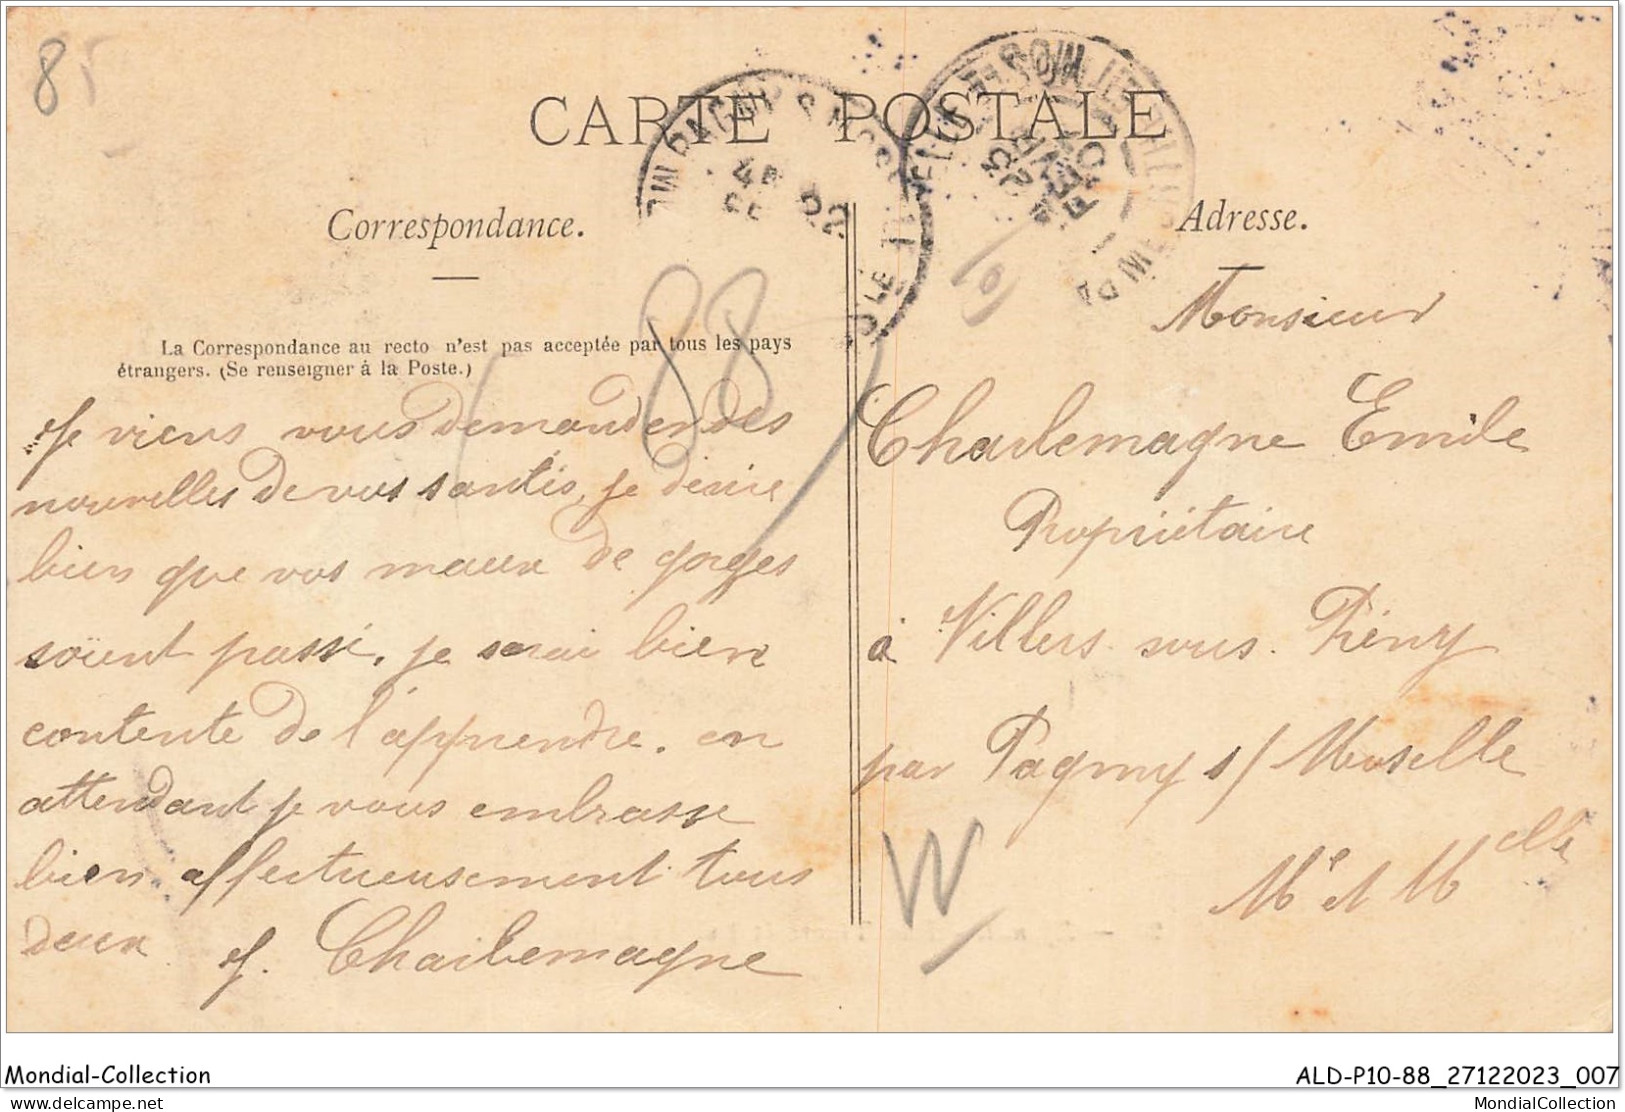 85
CARTE POSTALE
Correspondance.
Adresse.
La Correspondance au recto n'est pas acceptée par tous les pays
étrangers. (Se renseigner à la Poste.)
88
Je viens vous demander des
nouvelles de vos santés, je désire
bien que vos maux de gorges
soient passé, je serai bien
contente de l'apprendre. en
attendant je vous embrasse
bien affectueusement tous
deux J. Charlemagne
Monsieur
Charlemagne Emile
Propriétaire
à Villers sous Prény
par Pagny s/ Moselle
Me et Melle
W
Mondial-Collection
ALD-P10-88_27122023_007
delcampe.net
MondialCollection